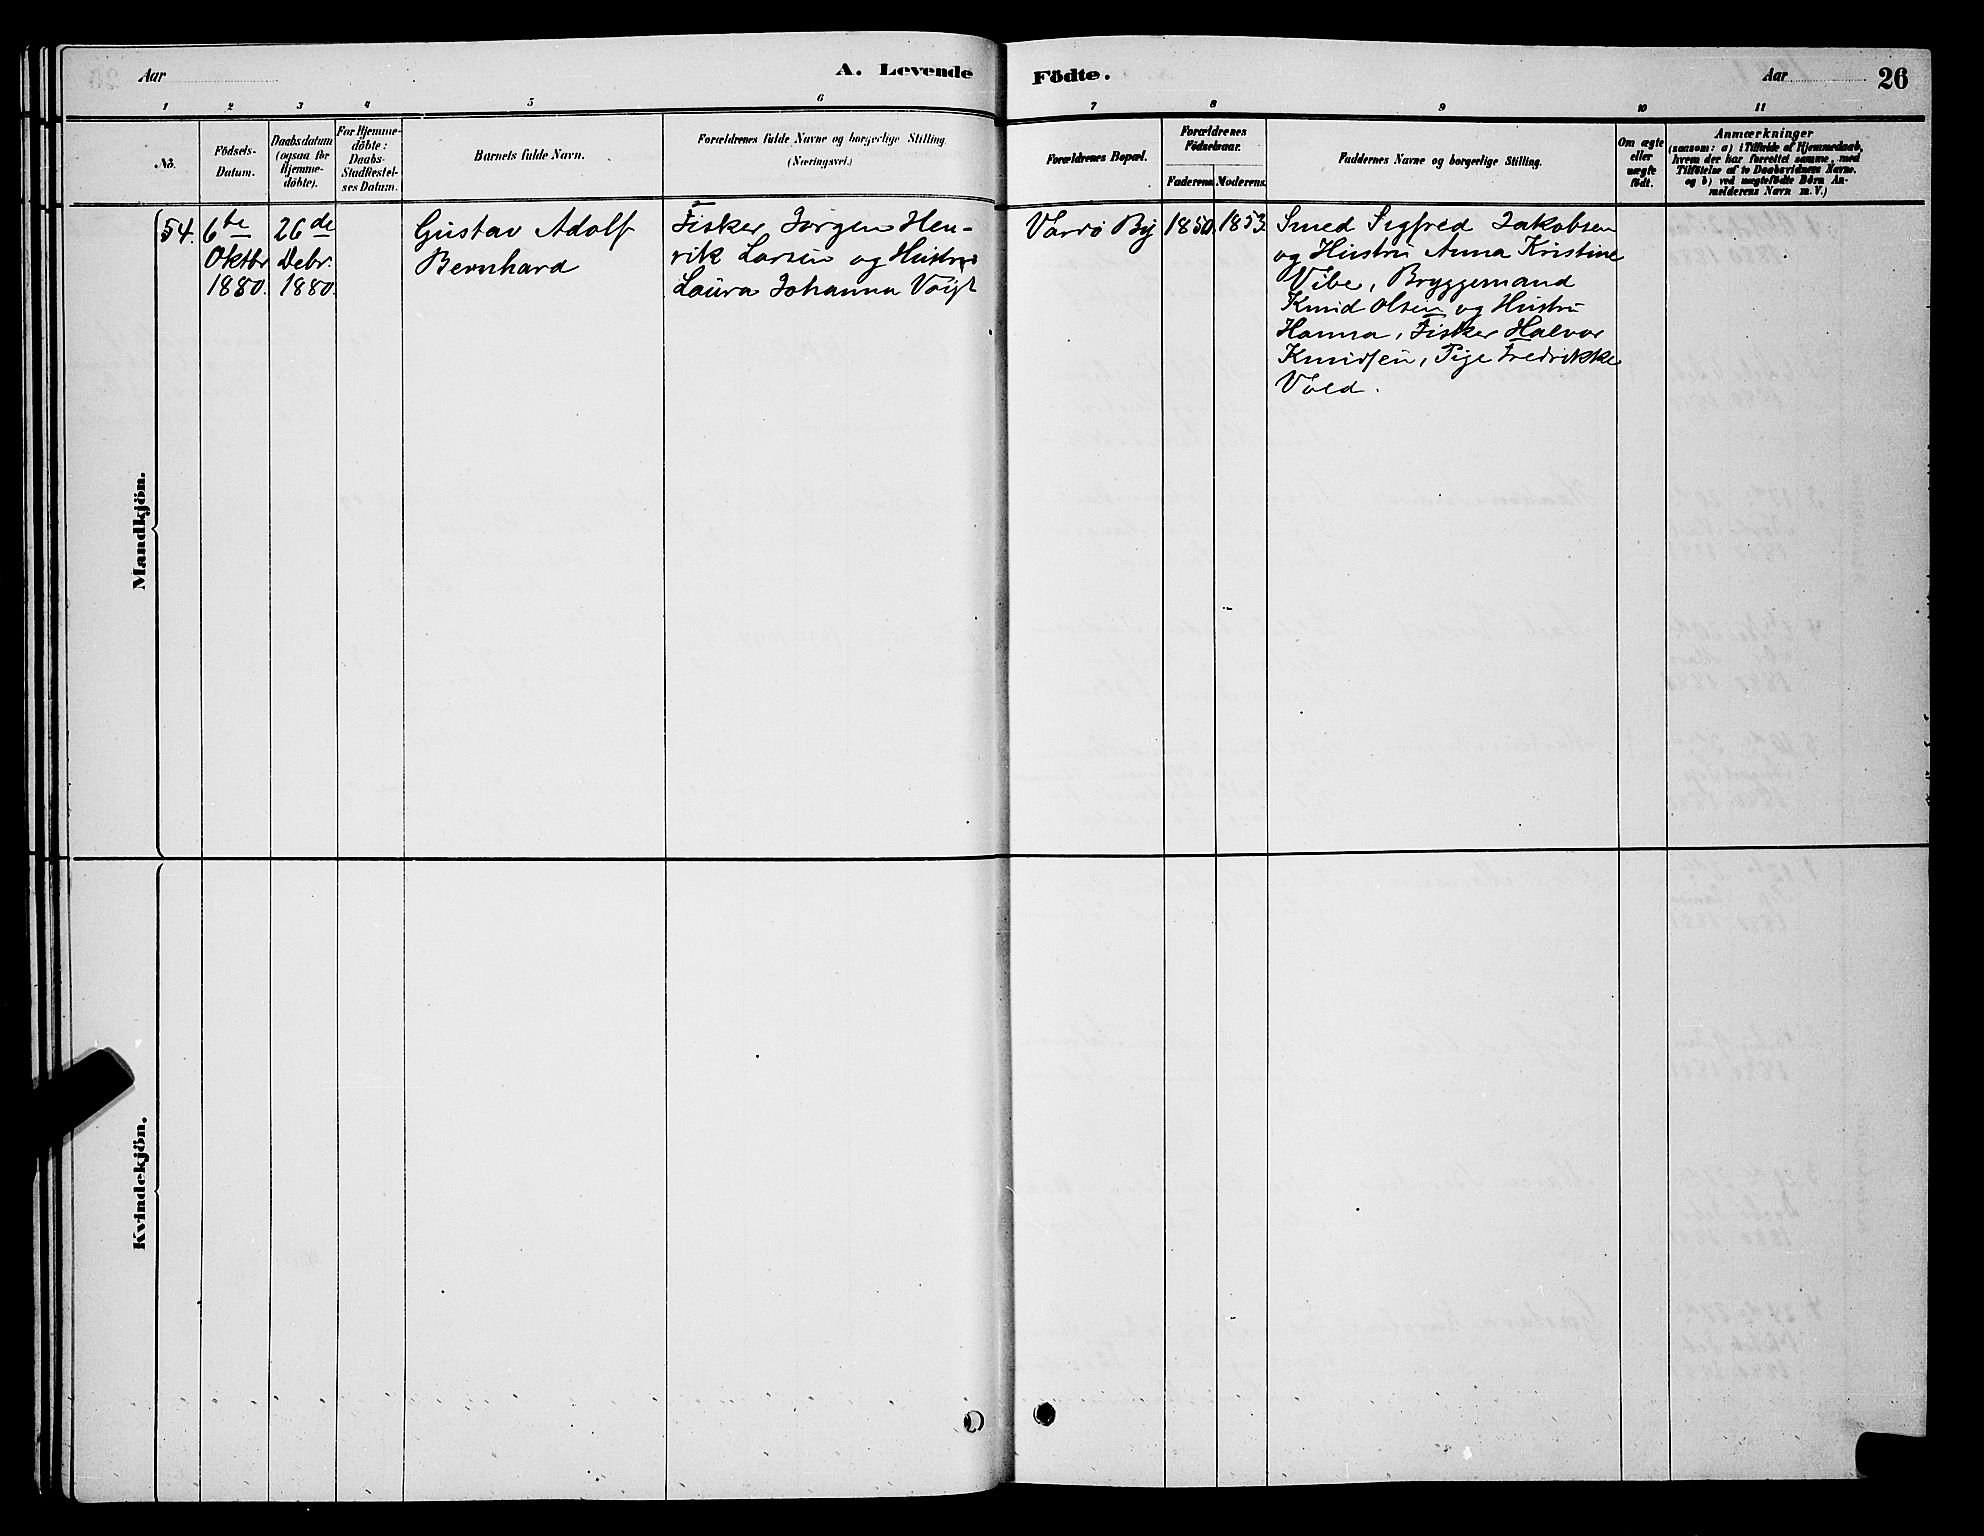 Aar
A. Levende
Födte.
Aar
26
1
2
3
4
5
6
7
8
9
10
11
No.
Födsels-
Datum.
Daabsdatum
(ogsaa for
Hjemme-
döbte).
For Hjemme-
döbte:
Daabs-
Stadfæstel-
ses Datum.
Barnets fulde Navn.
Forældrenes fulde Navne og borgerlige Stilling.
(Næringsvei.)
Forældrenes Bopæl.
Forældrenes
Födselsaar.
Faderens.
Moderens.
Faddernes Navne og borgerlige Stilling.
Om ægte
eller
uægte
födt.
Anmærkninger
(saasom: a) i Tilfælde af Hjemmedaab,
hvem der har forrettet samme, med
Tilföielse af to Daabsvidners Navne,
og b) ved uægtefödte Börn An-
melderens Navn m. V.)
Mandkjön.
54.
6te
Oktbr
1880.
26de
Debr.
1880.
Gustav Adolf
Bernhard
Fisker Jørgen Hen-
rik Larsen og Hustru
Laura Johanna Voigt
Vardø By
1850.
1853.
Smed Sigfred Jakobsen
og Hustru Anna Kristine
Vibe, Bryggemand
Knud Olsen og Hustru
Hanna, Fisker Halvor
Knudsen, Pige Fredrikke
Vold.
Kvindekjön.